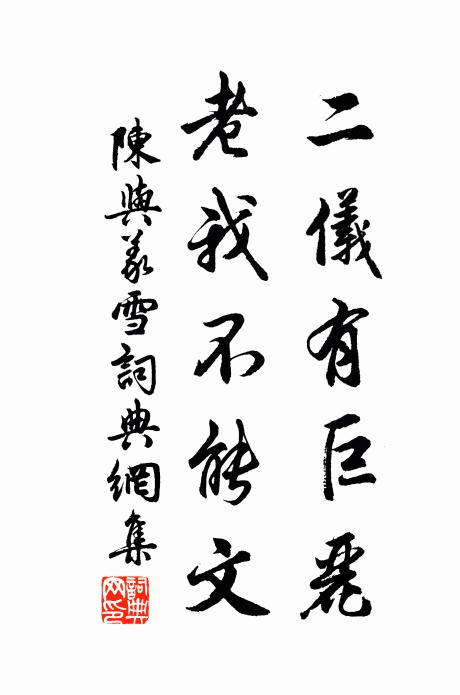 二儀有巨麗
老我不能文
陳與義雪詞典網集
詞典网印